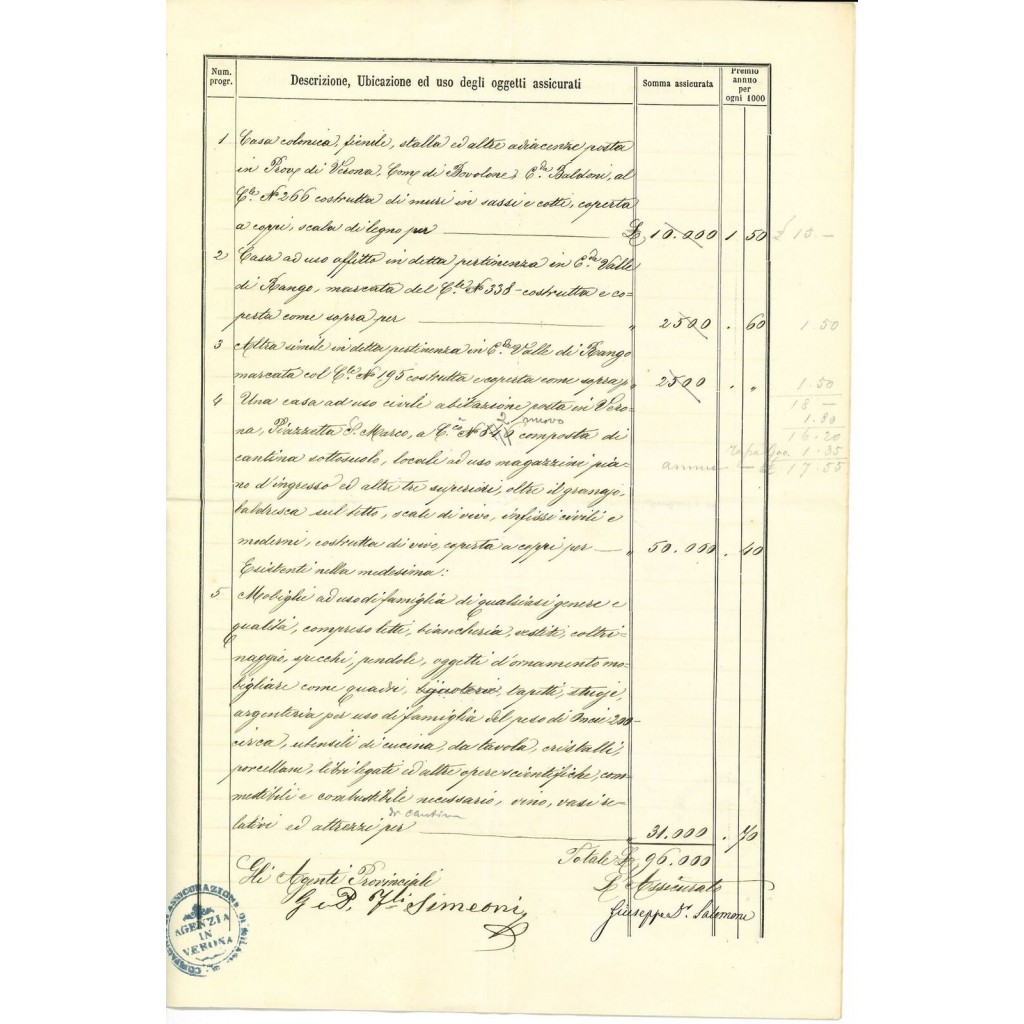 Num. progr.
Descrizione, Ubicazione ed uso degli oggetti assicurati
Somma assicurata
Premio annuo per ogni 1000
1 Casa colonica, fienile, stalla ed altre adiacenze posta
in Prov.a di Verona, Com.e di Bovolone, C.da Baldoni, al
C.o N.o 266 costrutta di muri in sassi e cotti, coperta
a coppi, scala di legno per £ 10.000 1 50 £ 15.-
2 Casa ad uso affitto in detta pertinenza in C.da Valle
di Rango, marcata del C.o N.o 338 - costrutta e co=
perta come sopra per " 2500 . 60 1.50
3 Altra simile in detta pertinenza in C.da Valle di Rango
marcata col C.o N.o 195 costrutta e coperta come sopra p " 2500 . " 1.50
18 -
4 Una casa ad uso civile abitazione posta in Vero= 1.80
na, Piazzetta S. Marco, a C.o N.o 2 nuovo composta di 16.20
cantina sottosuolo, locali ad uso magazzini pia= 1.35
no d'ingresso ed altri tre superiori, oltre il granajo, annue - £ 17.55
baldresca sul tetto, scale di vivo, infissi civili e
moderni, costrutta di vivo, coperta a coppi per " 50.000 . 40
Esistenti nella medesima:
5 Mobiglie ad uso di famiglia di qualsiasi genere e
qualità, compreso letti, biancheria, vestiti, coltri=
naggio, specchi, pendole, oggetti d'ornamento mo=
bigliare come quadri, tapetti, stuoje,
argenteria per uso di famiglia del peso di Oncie 200
circa, utensili di cucina, da tavola, cristalli,
porcellane, libri legati ed altre opere scientifiche, com=
mestibili e combustibile necessario, vino, vasi re=
lativi ed attrezzi di cantina per " 31.000 . 70
Totale £ 96.000
Gli Agenti Provinciali
L'Assicurato
G e P. F.lli Simeoni
Giuseppe D.r Salomoni
AGENZIA
IN
VERONA